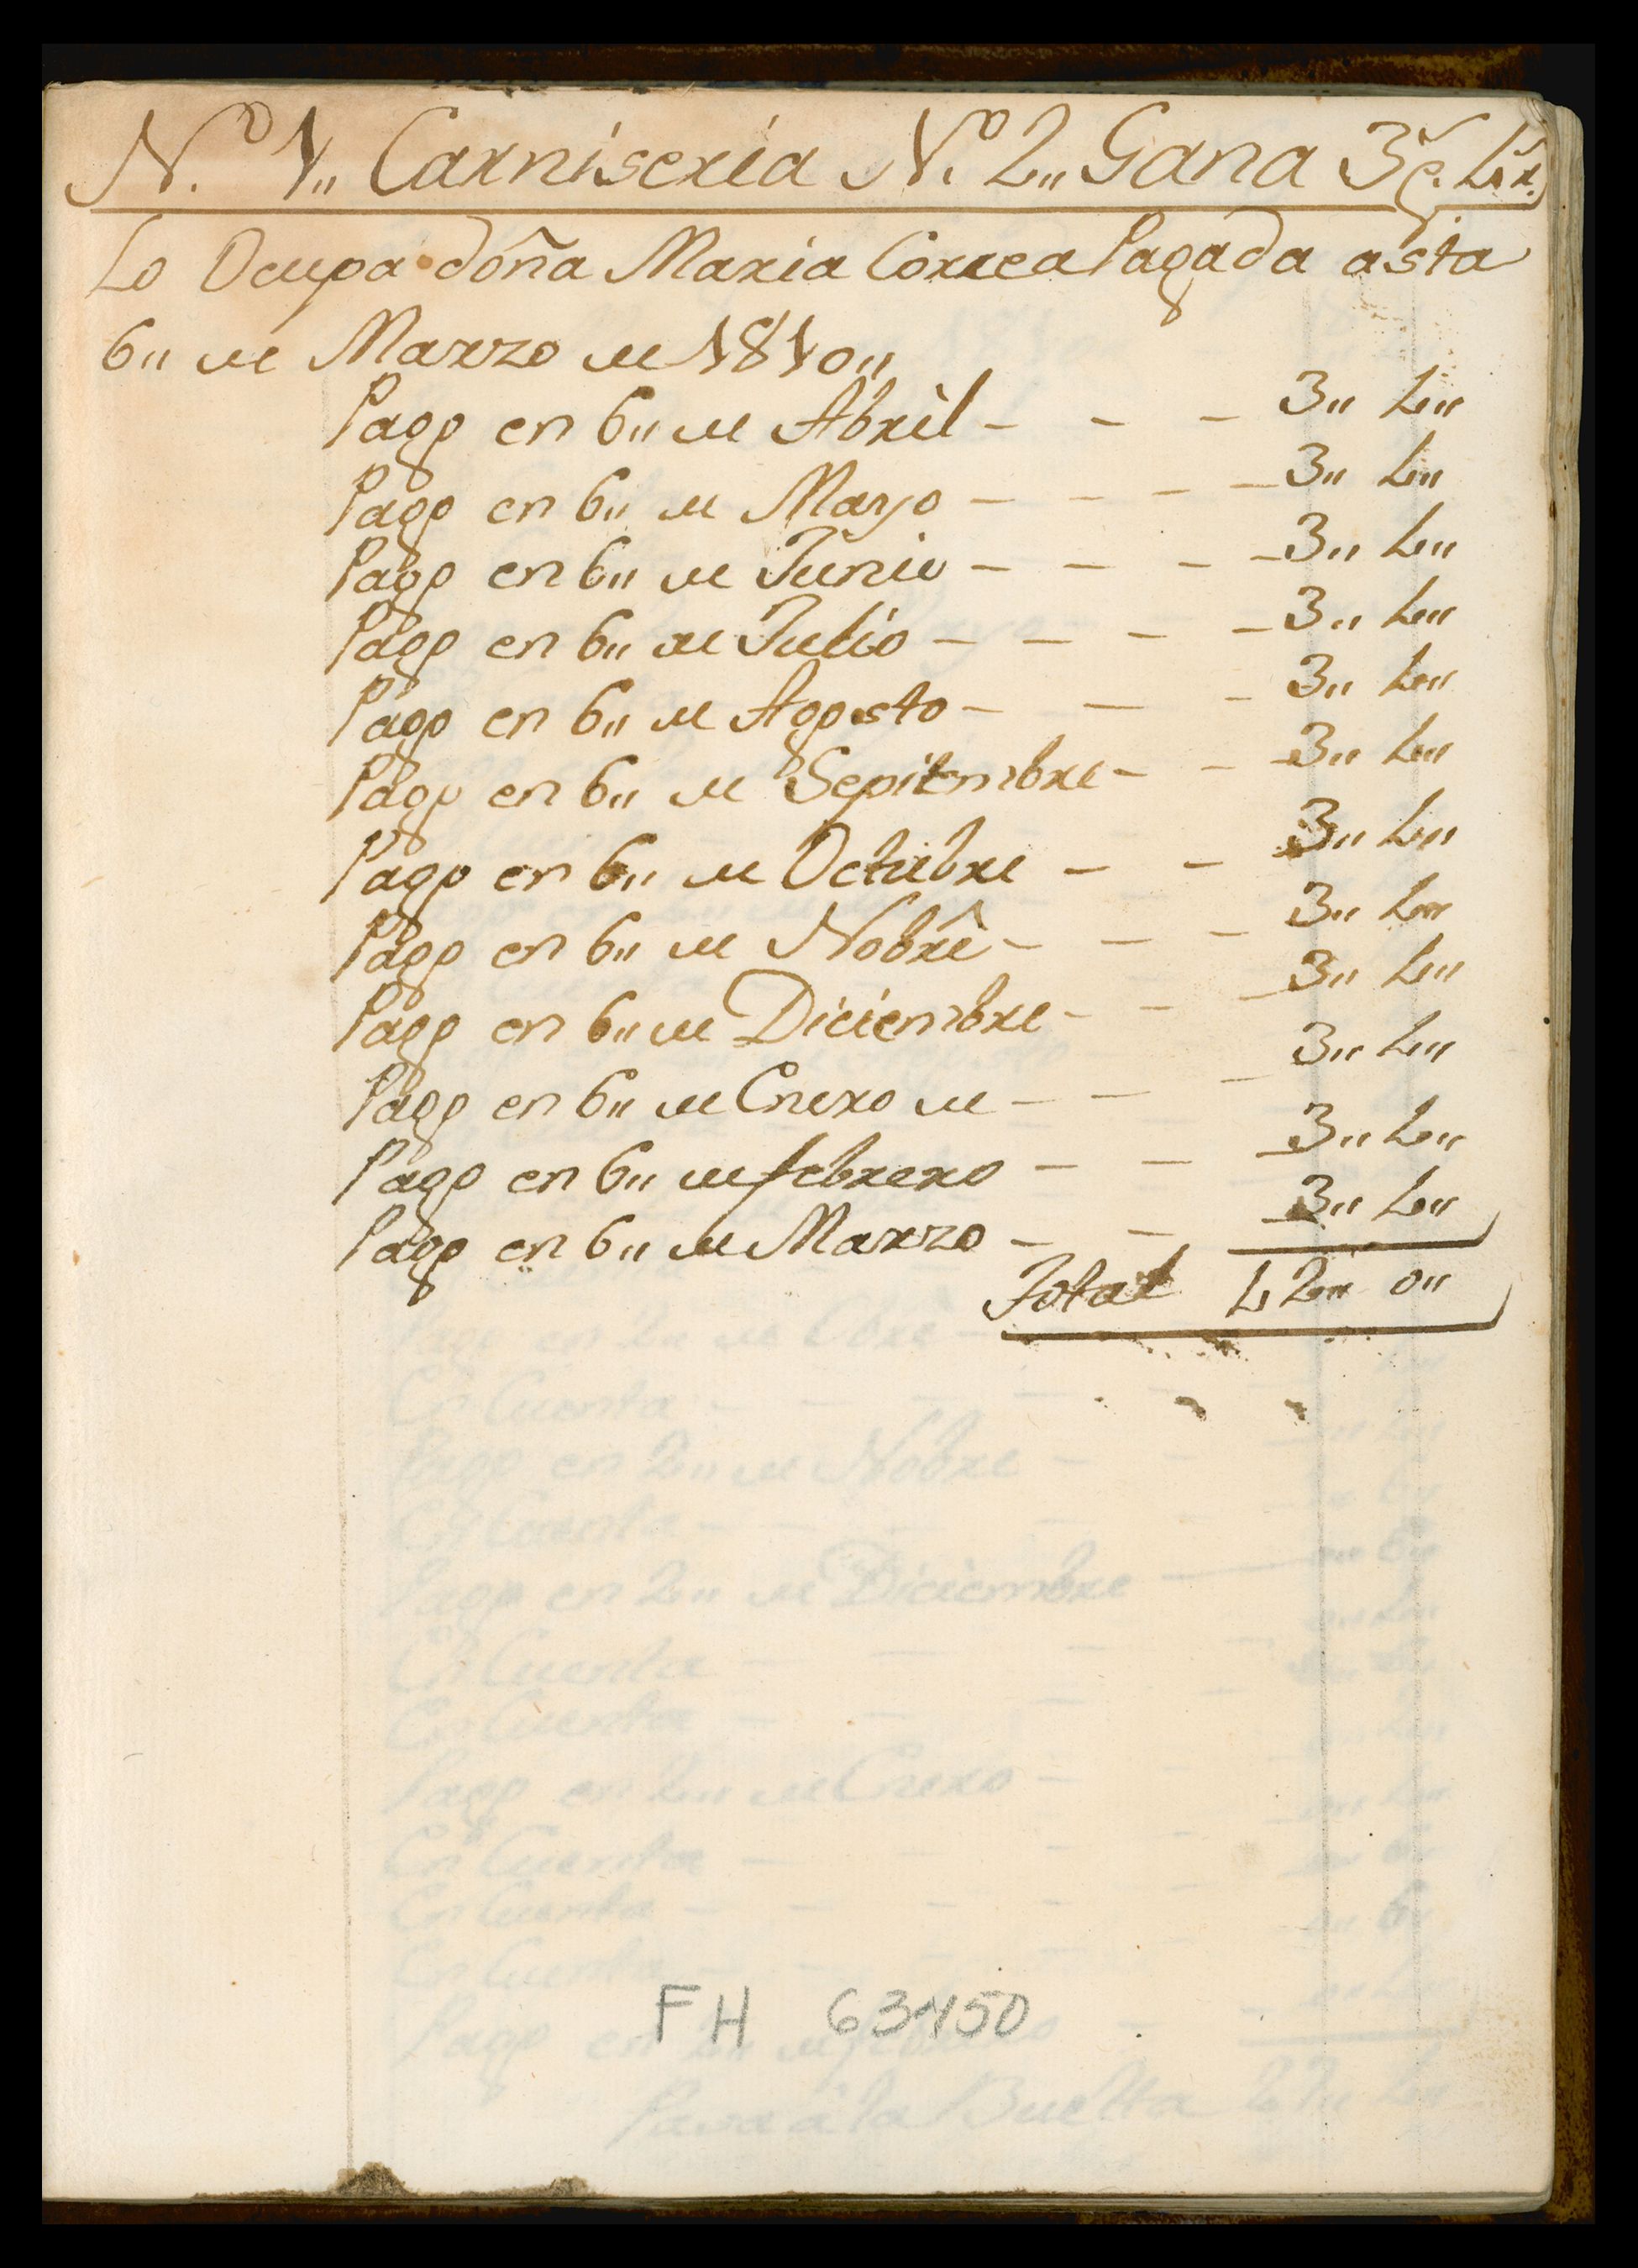 N.º 1,, Carniseria N.º 2,, Gana 3 p.s 4 r.s
Lo Ocupa doña Maria Correa Pagada asta
6,, de Marzo de 1810,,
Pago en 6,, de Abril - - - 3,, 4,,
Pago en 6,, de Mayo - - - - 3,, 4,,
Pago en 6,, de Junio - - - - 3,, 4,,
Pago en 6,, de Julio - - - - 3,, 4,,
Pago en 6,, de Agosto - - - 3,, 4,,
Pago en 6,, de Sepitembre - - - 3,, 4,,
Pago en 6,, de Octubre - - 3,, 4,,
Pago en 6,, de Nobrê - - - 3,, 4,,
Pago en 6,, de Diciembre - - - 3,, 4,,
Pago en 6,, de Enero de - - - 3,, 4,,
Pago en 6,, de febrero - - - 3,, 4,,
Pago en 6,, de Marzo - - - 3,, 4,,
Total 42,, 0,,
FH 63450